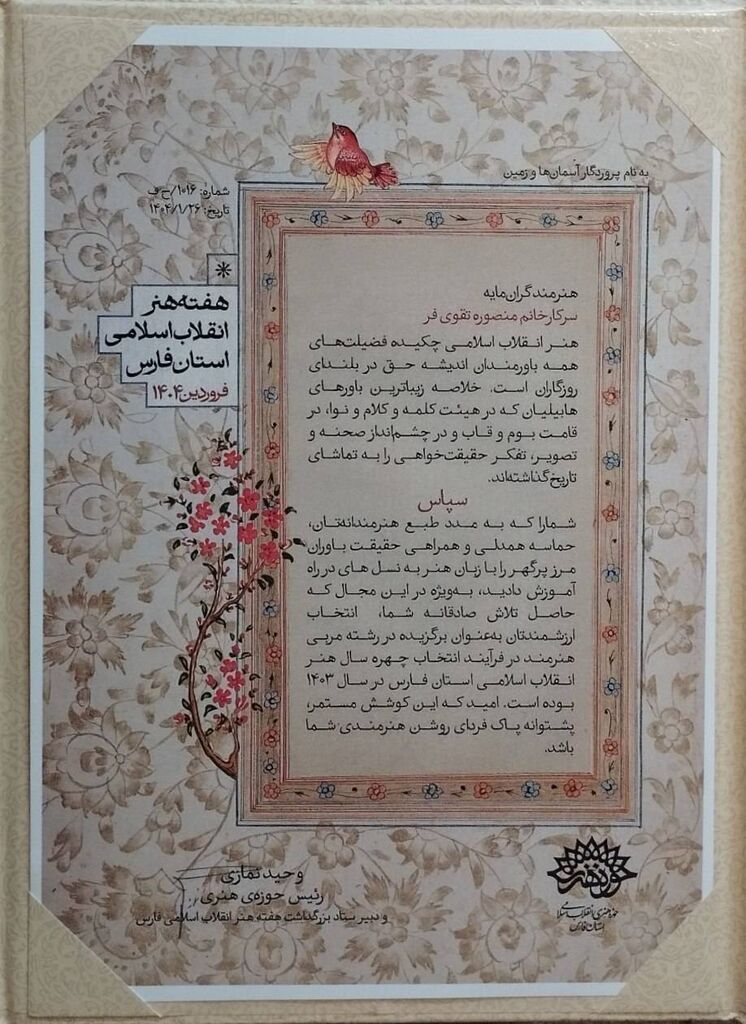 به نام پروردگار آسمان‌ها و زمین
شماره: ۱۰۱۶/ح-ف
تاریخ: ۱۴۰۴/۱/۲۶
هفته هنر
انقلاب اسلامی
استان فارس
فروردین ۱۴۰۴
هنرمند گران‌مایه
سرکار خانم منصوره تقوی فر
هنر انقلاب اسلامی چکیده فضیلت‌های
همه باورمندان اندیشه حق در بلندای
روزگاران است. خلاصه زیباترین باورهای
هابیلیان که در هیئت کلمه و کلام و نوا، در
قامت بوم و قاب و در چشم‌انداز صحنه و
تصویر، تفکر حقیقت‌خواهی را به تماشای
تاریخ گذاشته‌اند.
سپاس
شما را که به مدد طبع هنرمندانه‌تان،
حماسه همدلی و همراهی حقیقت باوران
مرز پرگهر را با زبان هنر به نسل های در راه
آموزش دادید، به‌ویژه در این مجال که
حاصل تلاش صادقانه شما، انتخاب
ارزشمندتان به‌عنوان برگزیده در رشته مربی
هنرمند در فرآیند انتخاب چهره سال هنر
انقلاب اسلامی استان فارس در سال ۱۴۰۳
بوده است. امید که این کوشش مستمر،
پشتوانه پاک فردای روشن هنرمندی شما
باشد.
وحید نمازی
رئیس حوزه‌ی هنری
و دبیر ستاد بزرگداشت هفته هنر انقلاب اسلامی فارس
حوزه هنری
حوزه هنری انقلاب اسلامی
استان فارس